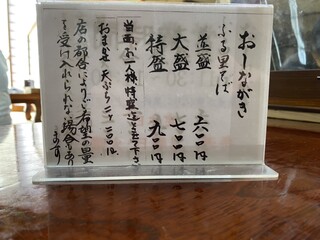 おしながき
ふる里そば
並盛 六〇〇円
大盛 七〇〇円
特盛 九〇〇円
当面お一人様特盛迄と至て下さ
おまかせ 天ぷら 一ヶ 二〇〇円
店の都合により
受け入れられない場合あり
ます